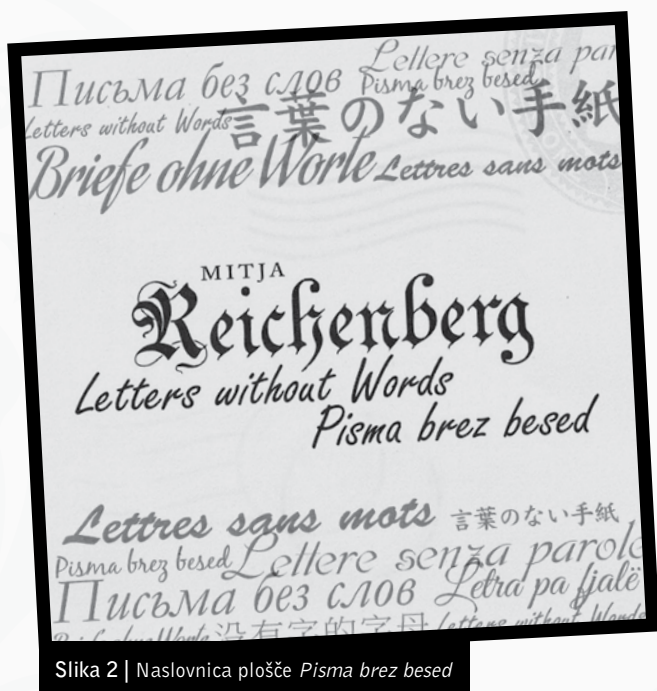 Lettere senza par
Письма без слов Pisma brez besed
Letters without Words 言葉のない手紙
Briefe ohne Worte Lettres sans mots
MITJA
Reichenberg
Letters without Words
Pisma brez besed
Lettres sans mots 言葉のない手紙
Pisma brez besed Lettere senza parole
Письма без слов Letra pa fjalë
Briefe ohne Worte 没有字的字母 Letters without Words
Slika 2 | Naslovnica plošče Pisma brez besed